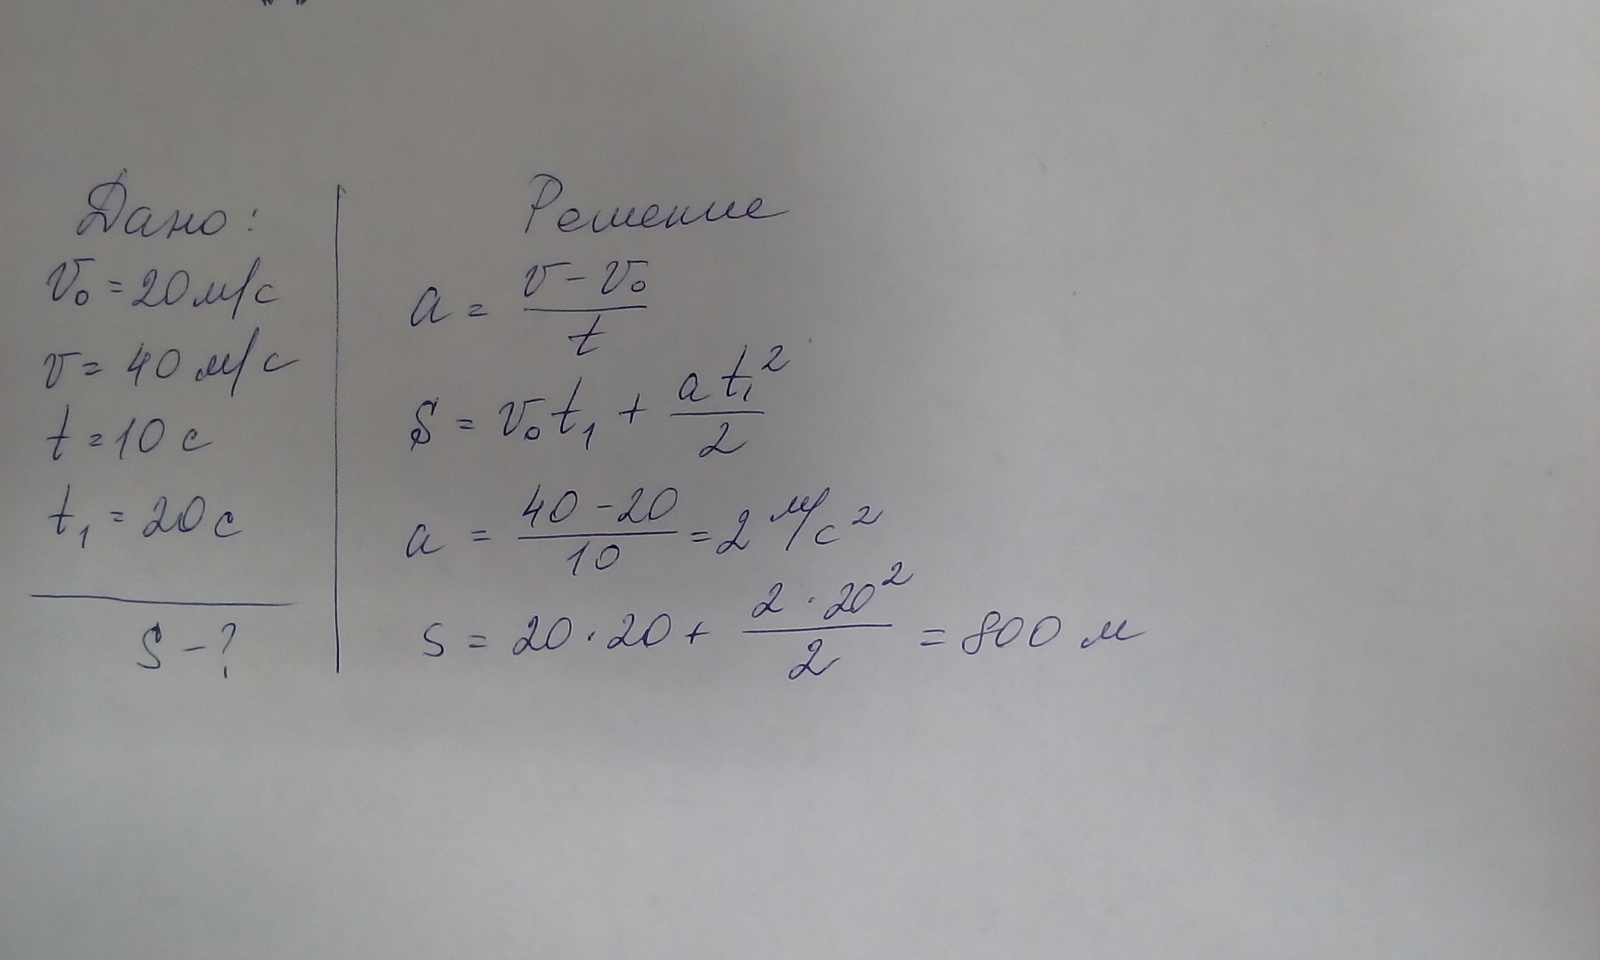 Дано:
v₀ = 20 м/с
v = 40 м/с
t = 10 с
t₁ = 20 с
S - ?
Решение
a = (v - v₀)/t
S = v₀t₁ + at₁²/2
a = (40 - 20)/10 = 2 м/с²
S = 20 · 20 + (2 · 20²)/2 = 800 м